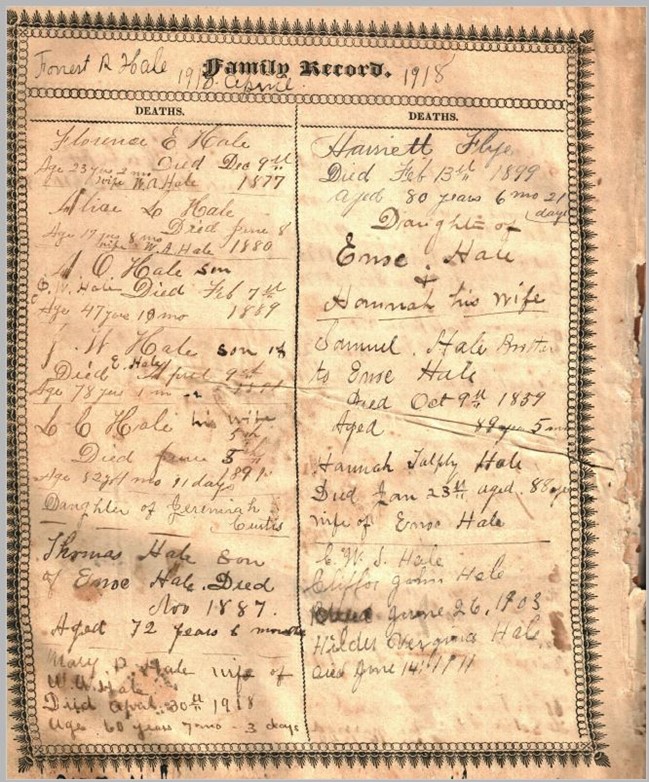 Forrest R Hale
Family Record.
1918 1918
DEATHS.
Florence E Hale
Died Dec 9th
Age 23 yrs 2 mo
wife W.A Hale 1877
Hale
Died June 8
Age 17 yrs 8 mo
wife W.A Hale 1880
O. Hale son
Hale Died Feb 7th
Age 47 yrs 10 mo 1889
J. W Hale son of
E. Hale
Died April 9th
Age 78 yrs 1 m
L C Hale his wife
Died June
Age 82 mo 11 days
Daughter of Jeremiah
Curtis
Thomas Hale Son
of Enoc Hale. Died
Nov 1887.
Aged 72 years 6 months
Mary D Hale wife of
W. A. Hale
Died April 30th 1918
Age 60 years 7 mo 3 days
DEATHS.
Harriett Flye
Died Feb 13th 1899
aged 80 years 6 mo 21
days
Daughter of
Enoc. Hale
&
Hannah his wife
Samuel. Hale
to Enoc Hale
Died Oct 9th 1859
Aged 89 5
Hannah Hale
Died Jan 23rd aged. 88
wife of Enoc Hale
Hale
John Hale
June 26, 1903
Hale
Died June 14, 1911